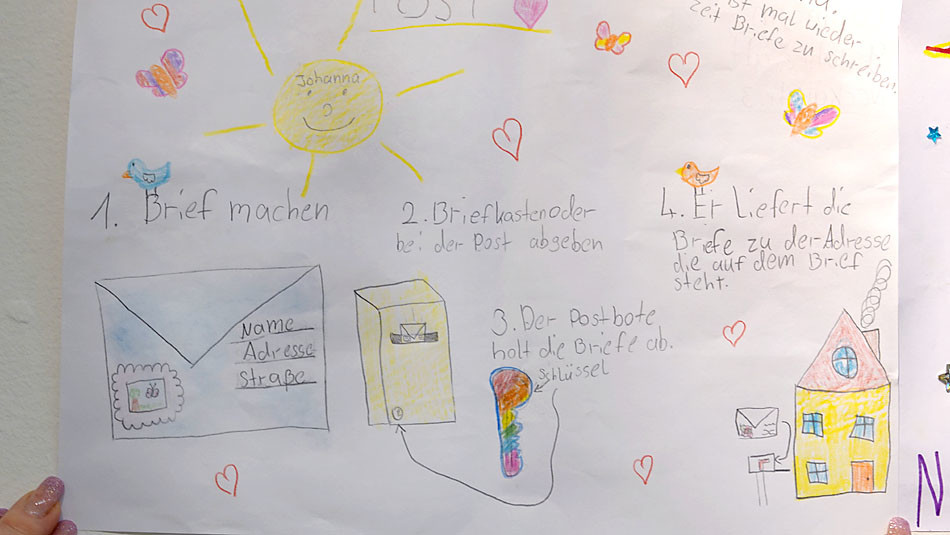 POST
ist mal wieder
zeit Briefe zu schreiben.
Johanna
1. Brief machen
Name
Adresse
Straße
2. Briefkasten oder
bei der Post abgeben
3. Der Postbote
holt die Briefe ab.
Schlüssel
4. Er Liefert die
Briefe zu der Adresse
die auf dem Brief
steht.
N